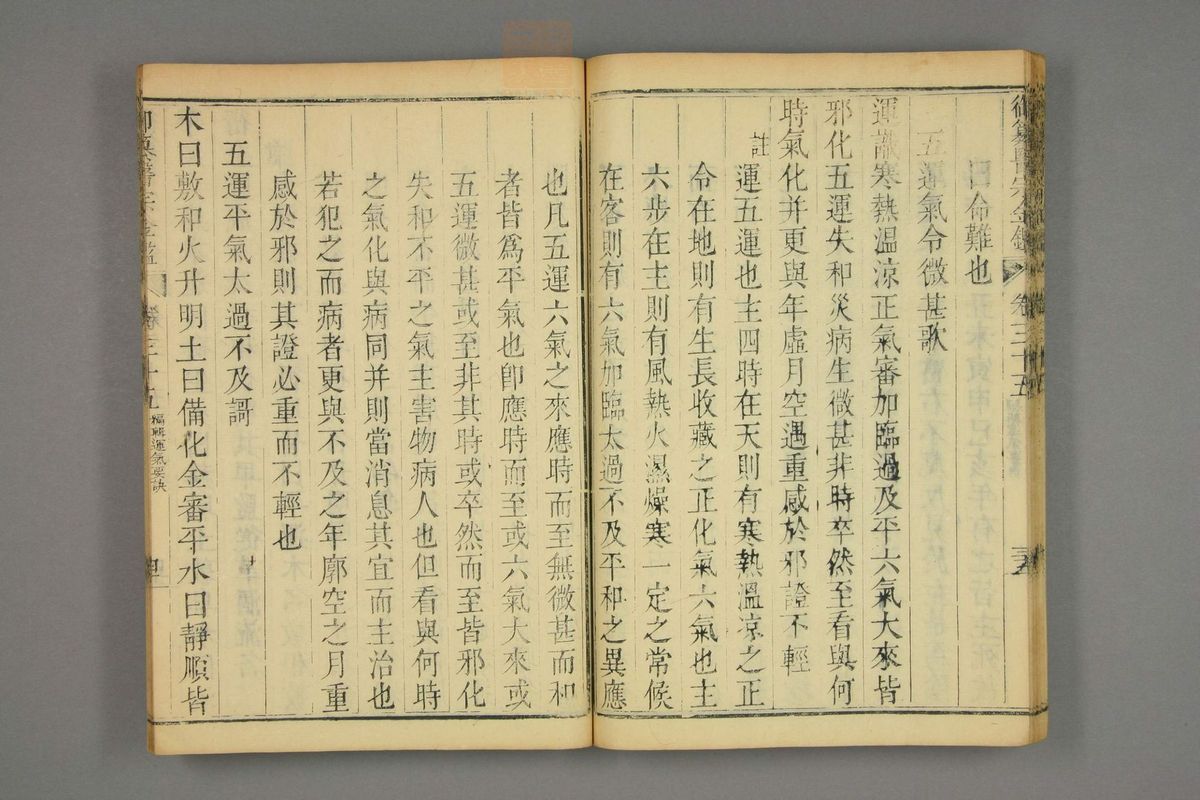 御纂醫宗金鑑 卷三十五
曰命難也
五運氣令微甚歌
運識寒熱温涼正氣審加臨過及平六氣大來皆
邪化五運失和災病生微甚非時卒然至看與何
時氣化并更與年虛月空遇重感於邪證不輕
註
運五運也主四時在天則有寒熱溫凉之正
令在地則有生長收藏之正化氣六氣也主
六步在主則有風熱火濕燥寒一定之常候
在客則有六氣加臨太過不及平和之異應
也凡五運六氣之來應時而至無微甚而和
者皆爲平氣也卽應時而至或六氣大來或
五運微甚或至非其時或卒然而至皆邪化
失和不平之氣主害物病人也但看與何時
之氣化與病同并則當消息其宜而主治也
若犯之而病者更與不及之年廓空之月重
感於邪則其證必重而不輕也
五運平氣太過不及謌
木曰敷和火升明土曰備化金審平水曰靜順皆
御纂醫宗金鑑 卷三十五 編輯運氣要訣